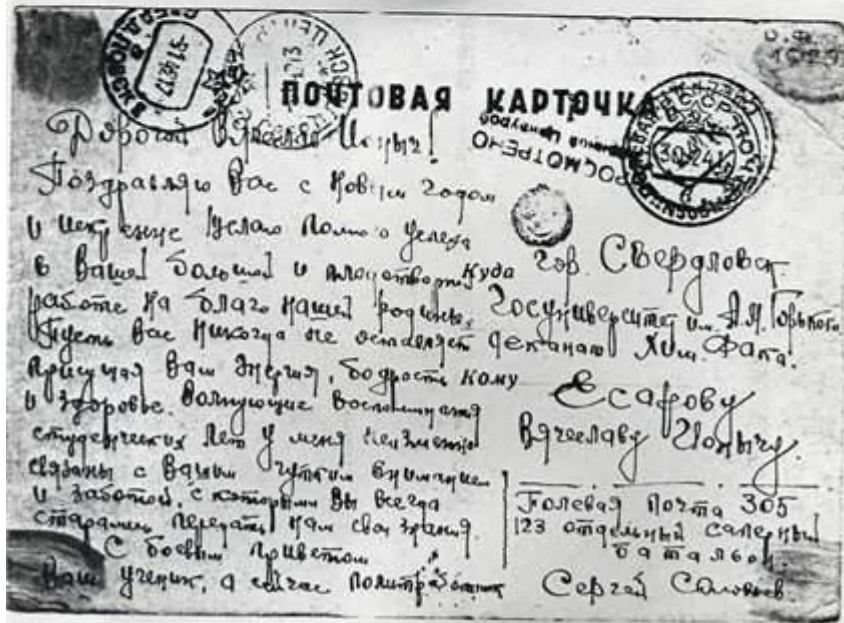 ПОЧТОВАЯ КАРТОЧКА
Дорогой Вячеслав Ионыч!
Поздравляю Вас с Новым Годом
и искренне желаю полного успеха
в Вашей большой и плодотворн.
работе на благо нашей родины.
Пусть Вас никогда не оставляет
присущая Вам энергия, бодрость
и здоровье. Волнующие воспоминания
студенческих лет у меня неизменно
связаны с Вашим чутким вниманием
и заботой, с которыми Вы всегда
старались передать нам свои знания.
С боевым приветом
Ваш ученик, а сейчас политработник
Куда гор. Свердловск
Госуниверситет им. А.М. Горького
деканат Хим. Фака.
Кому
Есафову
Вячеславу Ионычу.
Полевая почта 305
123 отдельный саперный
батальон.
Сергей Соловьев.
ПРОСМОТРЕНО